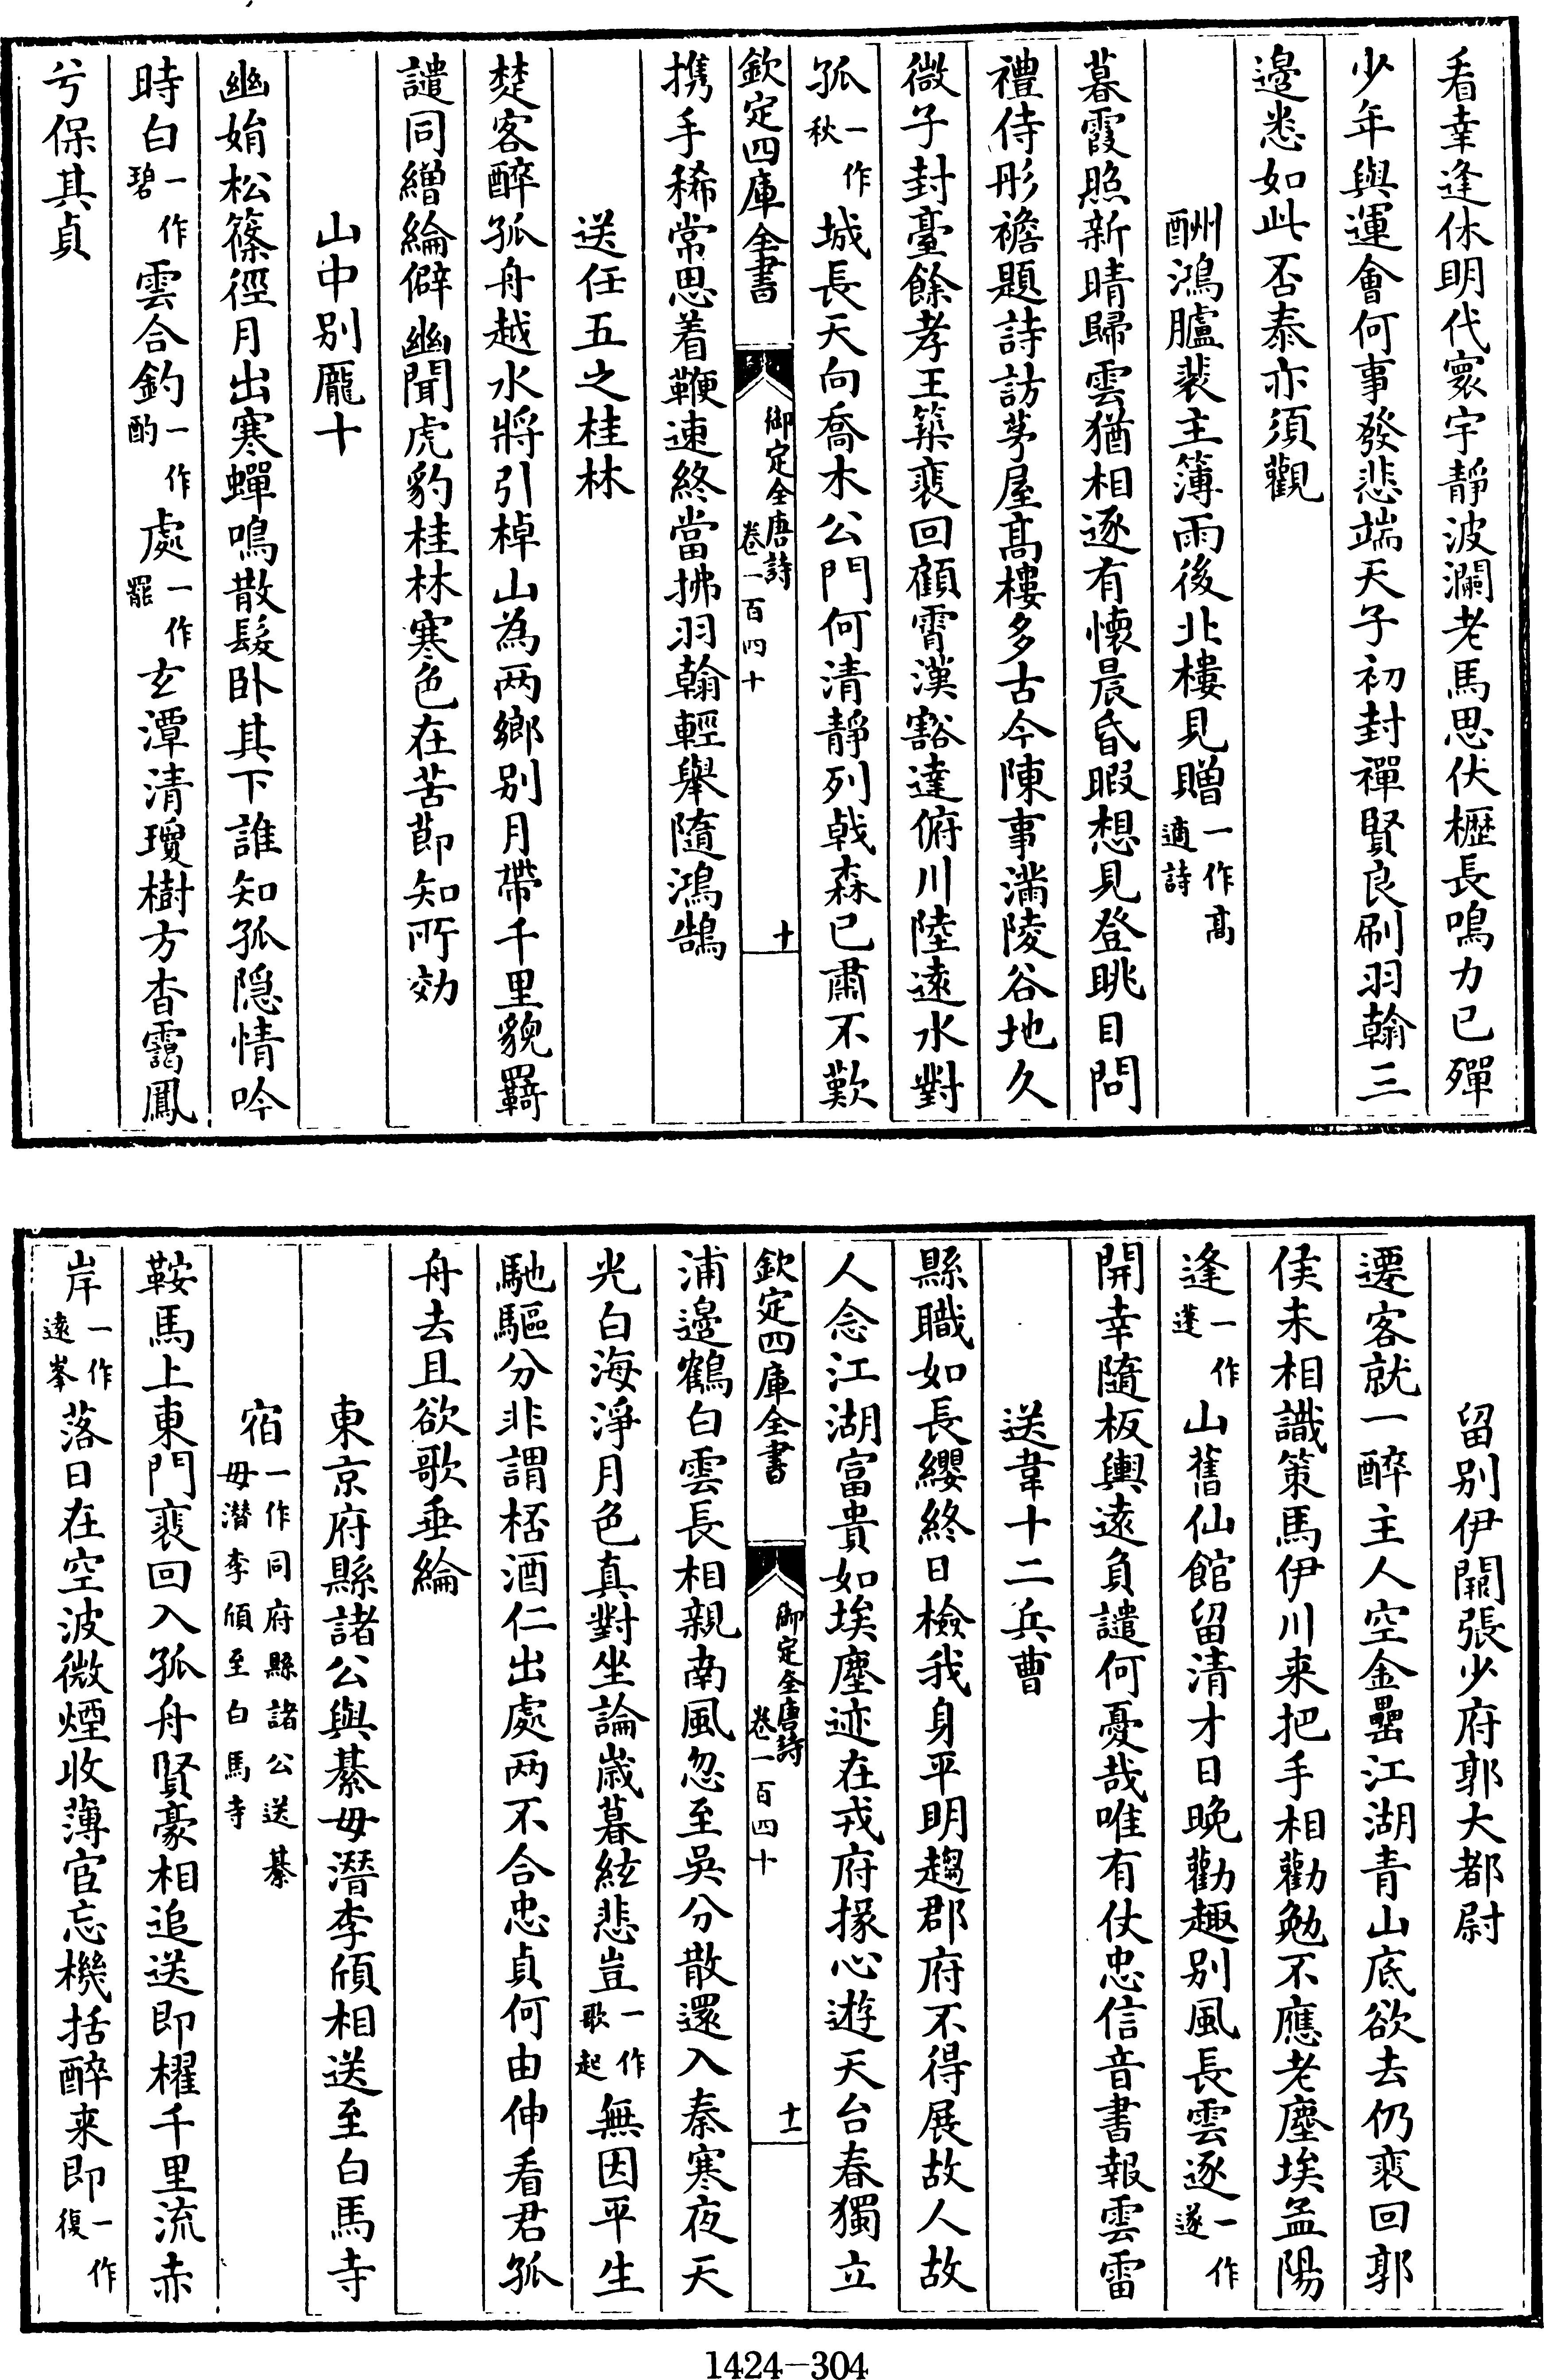 看幸逢休明代寰宇靜波瀾老馬思伏櫪長鳴力已殫
少年與運會何事發悲端天子初封禪賢良刷羽翰三
邉悉如此否泰亦須觀
酬鴻臚裴主簿雨後北樓見贈一作高適詩
暮霞照新晴歸雲猶相逐有懷晨昏暇想見登眺目問
禮侍彤襜題詩訪茅屋髙樓多古今陳事滿陵谷地久
微子封臺餘孝王築裵回顧霄漢豁達俯川陸遠水對
孤一作秋城長天向喬木公門何清靜列戟森已肅不歎
欽定四庫全書
御定全唐詩
卷一百四十
十
携手稀常思着鞭速終當拂羽翰輕舉隨鴻鵠
送任五之桂林
楚客醉孤舟越水將引棹山為两鄉别月帶千里貌羇
譴同繒綸僻幽聞虎豹桂林寒色在苦節知所効
山中别龎十
幽娟松篠徑月出寒蟬鳴散髮卧其下誰知孤隠情吟
時白一作碧雲合釣一作酌處一作罷𤣥潭清瓊樹方杳靄鳳
兮保其貞
留别伊闕張少府郭大都尉
遷客就一醉主人空金罍江湖青山底欲去仍裵回郭
侯未相識策馬伊川来把手相勸勉不應老塵埃孟陽
逢一作蓬山舊仙館留清才日晚勸趣别風長雲逐一作遂
開幸隨板輿遠負譴何憂哉唯有仗忠信音書報雲雷
送韋十二兵曹
縣職如長纓終日檢我身平明趨郡府不得展故人故
人念江湖富貴如埃塵迹在戎府掾心遊天台春獨立
欽定四庫全書
御定全唐詩
卷一百四十
十一
浦邉鶴白雲長相親南風忽至吳分散還入秦寒夜天
光白海淨月色真對坐論歳暮絃悲豈一作歌起無因平生
馳驅分非謂桮酒仁出處两不合忠貞何由伸看君孤
舟去且欲歌垂綸
東京府縣諸公與綦毋潛李頎相送至白馬寺
宿一作同府縣諸公送綦毋潜李頎至白馬寺
鞍馬上東門裵回入孤舟賢豪相追送即櫂千里流赤
岸一作遠峯落日在空波微煙收薄宦忘機括醉来即一作復
1424—304